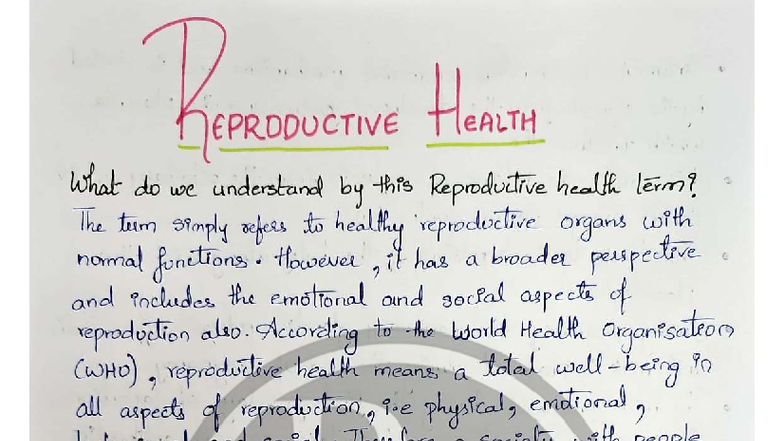 REPRODUCTIVE HEALTH
What do we understand by this Reproductive health term?
The term simply refers to healthy reproductive organs with
normal functions. However, it has a broader perspective
and includes the emotional and social aspects of
reproduction also. According to the World Health Organisation
(WHO), reproductive health means a total well-being in
all aspects of reproduction, i.e physical, emotional,